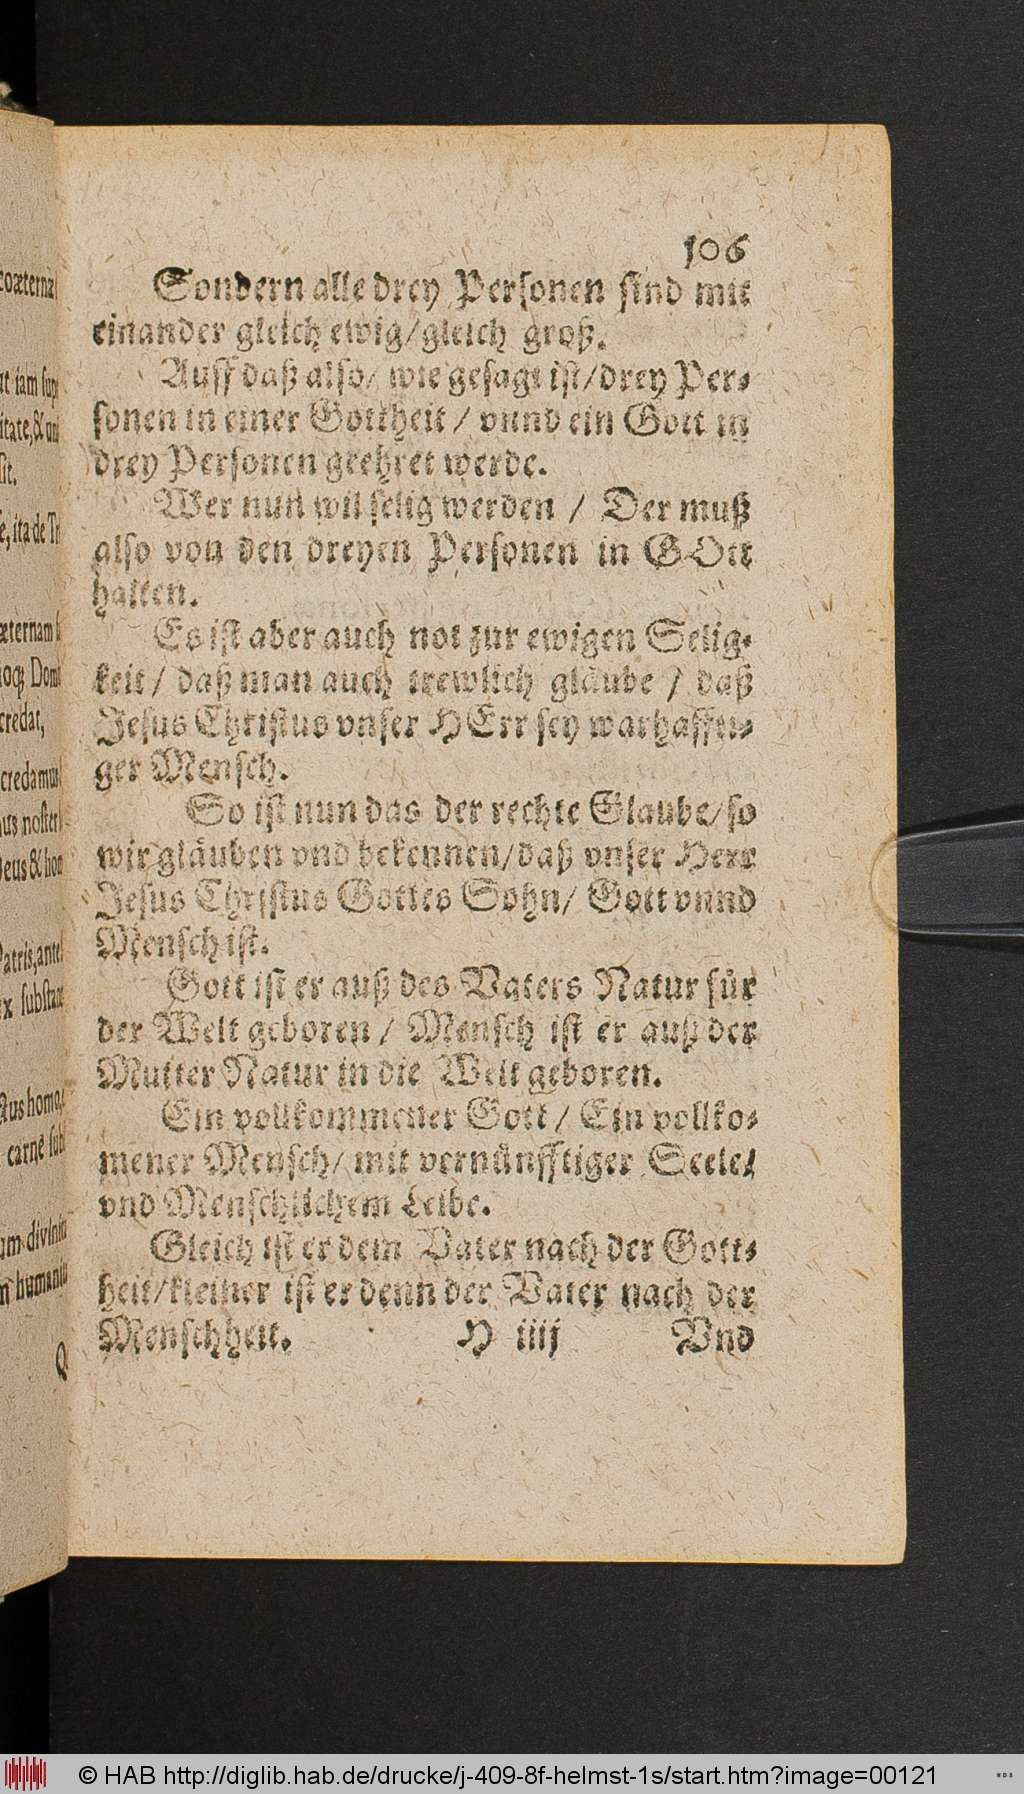 106
Sondern alle drey Personen sind mit
einander gleich ewig/gleich groß.
Auff daß also/ wie gesagt ist/drey Per-
sonen in einer Gottheit / vnnd ein Gott in
drey Personen geehret werde.
Wer nun wil selig werden / Der muß
also von den dreyen Personen in GOtt
halten.
Es ist aber auch not zur ewigen Selig-
keit / daß man auch trewlich gläube / daß
Jesus Christus vnser HErr sey warhaffti-
ger Mensch.
So ist nun das der rechte Glaube/so
wir gläuben vnd bekennen/daß vnser Herr
Jesus Christus Gottes Sohn/ Gott vnnd
Mensch ist.
Gott ist er auß des Vaters Natur für
der Welt geboren / Mensch ist er auß der
Mutter Natur in die Welt geboren.
Ein vollkommener Gott / Ein vollko-
mener Mensch/ mit vernünfftiger Seele/
vnd Menschlichem Leibe.
Gleich ist er dem Vater nach der Gott-
heit/kleiner ist er denn der Vater nach der
Menschheit. H iiij Vnd
coæternæ
iam sup
itate,&
sit.
ita de Tr
æternam
Dom
credat,
credamus
noster
Deus & hom
Patris, ante
ex substant
homo,
carne sub
divinita
humanita
Q
© HAB http://diglib.hab.de/drucke/j-409-8f-helmst-1s/start.htm?image=00121